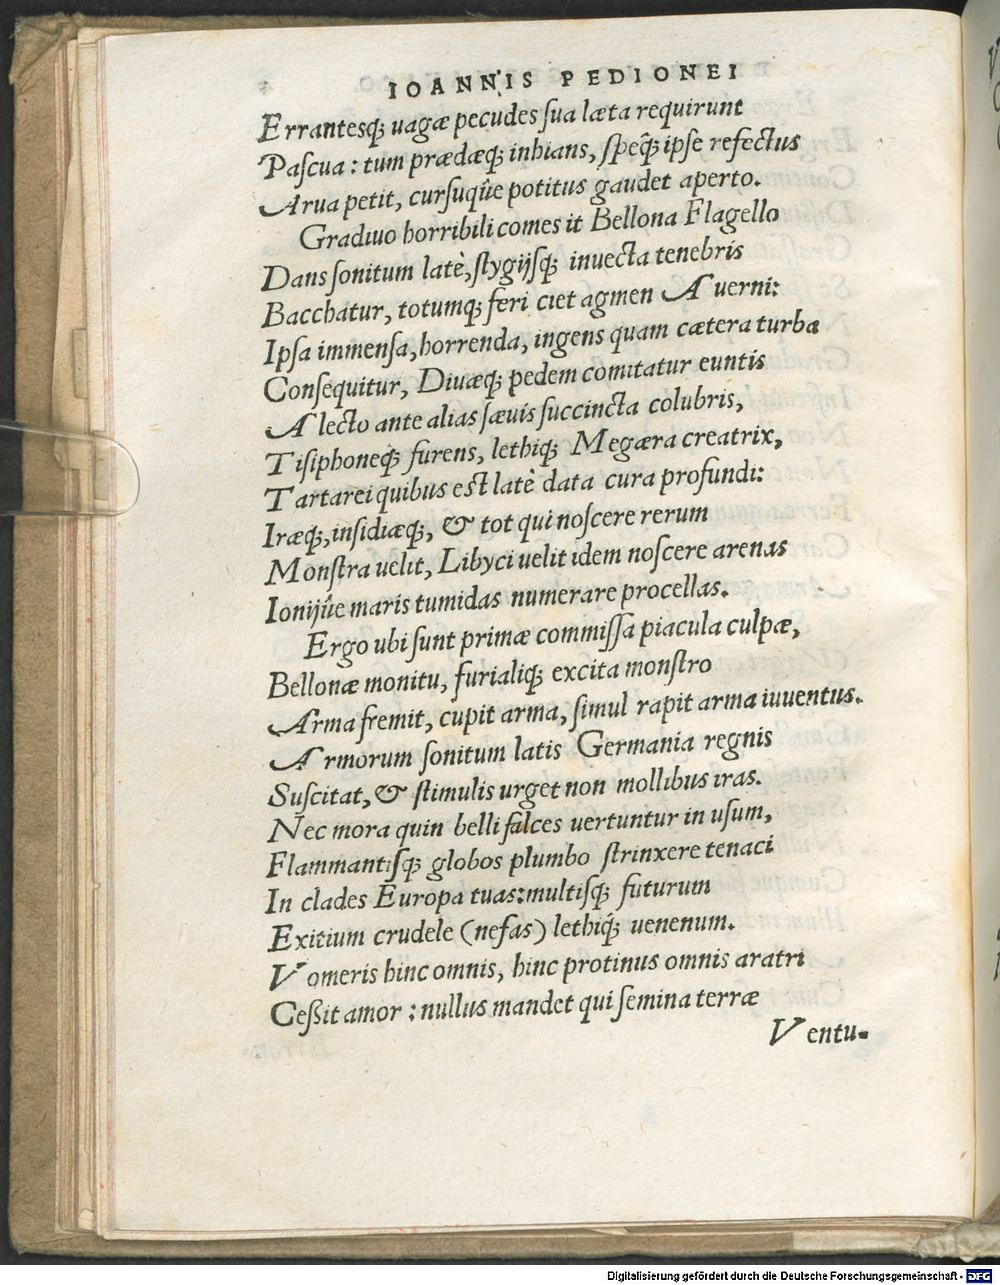 IOANNIS PEDIONEI
Errantesq; uagæ pecudes sua læta requirunt
Pascua: tum prædæq; inhians, speq̃; ipse refectus
Arua petit, cursuqûe potitus gaudet aperto.
Gradiuo horribili comes it Bellona Flagello
Dans sonitum latè, stygijsq; inuecta tenebris
Bacchatur, totumq; feri ciet agmen Auerni:
Ipsa immensa, horrenda, ingens quam cætera turba
Consequitur, Diuæq; pedem comitatur euntis
Alecto ante alias sæuis succincta colubris,
Tisiphoneq; furens, lethiq; Megæra creatrix,
Tartarei quibus est latè data cura profundi:
Iræq;, insidiæq;, & tot qui noscere rerum
Monstra uelit, Libyci uelit idem noscere arenas
Ionijûe maris tumidas numerare procellas.
Ergo ubi sunt primæ commissa piacula culpæ,
Bellonæ monitu, furialiq; excita monstro
Arma fremit, cupit arma, simul rapit arma iuuentus.
Armorum sonitum latis Germania regnis
Suscitat, & stimulis urget non mollibus iras.
Nec mora quin belli falces uertuntur in usum,
Flammantisq; globos plumbo strinxere tenaci
In clades Europa tuas: multisq; futurum
Exitium crudele (nefas) lethiq; uenenum.
Vomeris hinc omnis, hinc protinus omnis aratri
Ceßit amor: nullus mandet qui semina terræ
Ventu-
Digitalisierung gefördert durch die Deutsche Forschungsgemeinschaft - DFG